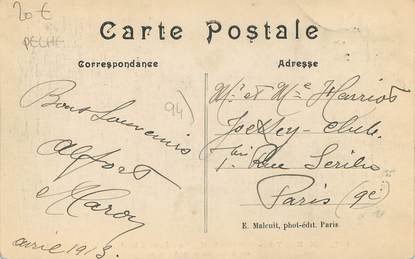 20 €
PECHE
Carte Postale
Correspondance
Adresse
94)
Bons Souvenirs
Alfort
avril 1913.
Mr et Mme Harriot
Jockey-Club.
1 bis Rue Scribe
Paris (9e)
E. Malcuit, phot-édit. Paris